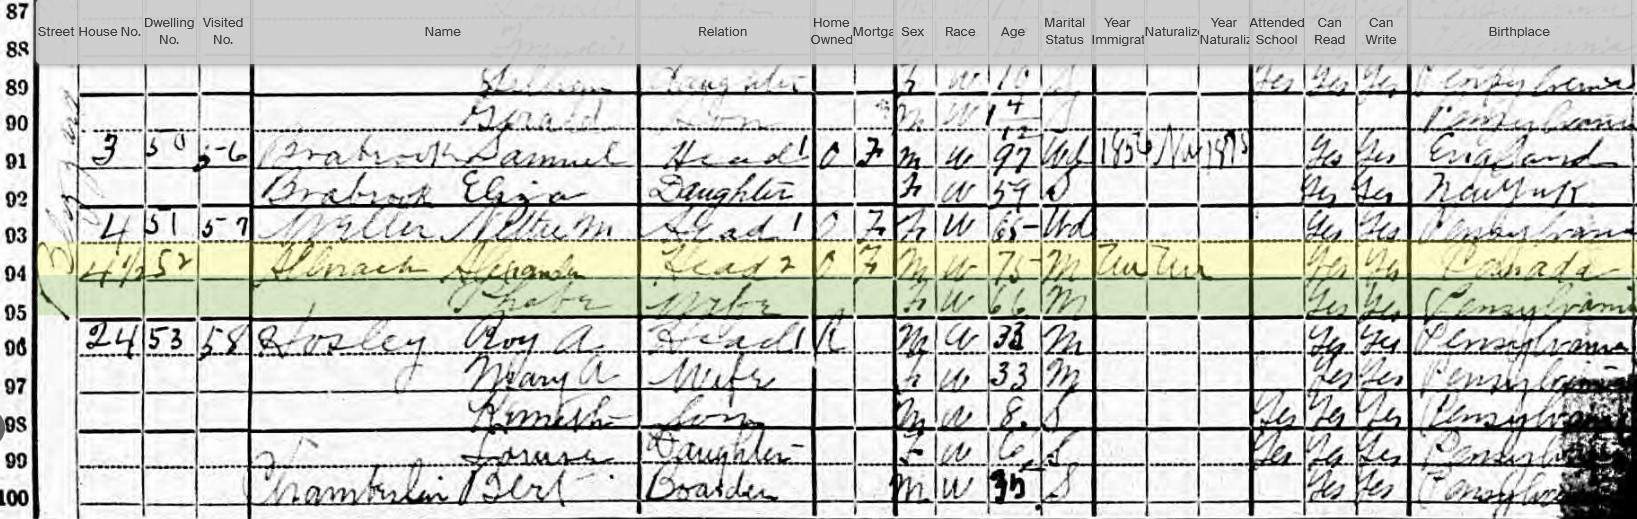 Street House No. Dwelling No. Visited No. Name Relation Home Owned Mortga Sex Race Age Marital Status Year Immigrat Naturaliz Year Naturaliz Attended School Can Read Can Write Birthplace
87
88
89 Daughter F W S Yes Yes Yes Pennsylvania
90 Gerald Son M W S Pennsylvania
91 3 50 56 Brabrook Samuel Head 1 O F M W 97 Wd Yes Yes England
92 Brabrook Eliza Daughter F W 59 S Yes Yes New York
93 4 51 57 Miller Nettie M Head 1 O F F W 65 Wd Yes Yes Pennsylvania
94 4 1/2 52 Head 2 O F M W 75 M Un Un Yes Yes Canada
95 Phebe Wife F W 66 M Yes Yes Pennsylvania
96 24 53 58 Hosley Roy A Head 1 R M W 33 M Yes Yes Pennsylvania
97 Mary A Wife F W 33 M Yes Yes Pennsylvania
98 Kenneth Son M W 8 S Yes Yes Yes Pennsylvania
99 Daughter F W 6 S Yes Yes Yes Pennsylvania
100 Chamberlin Bert Boarder M W 35 S Yes Yes Pennsylvania